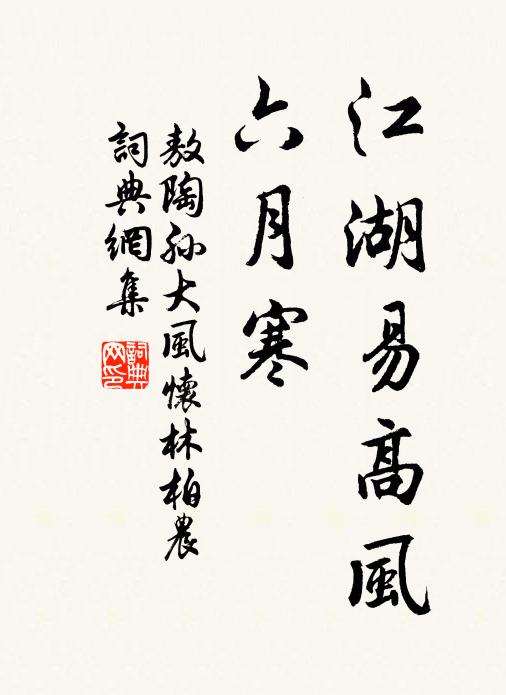 江湖易高風
六月寒
敖陶孙大風懷林柏農
詞典網集
詞典網印